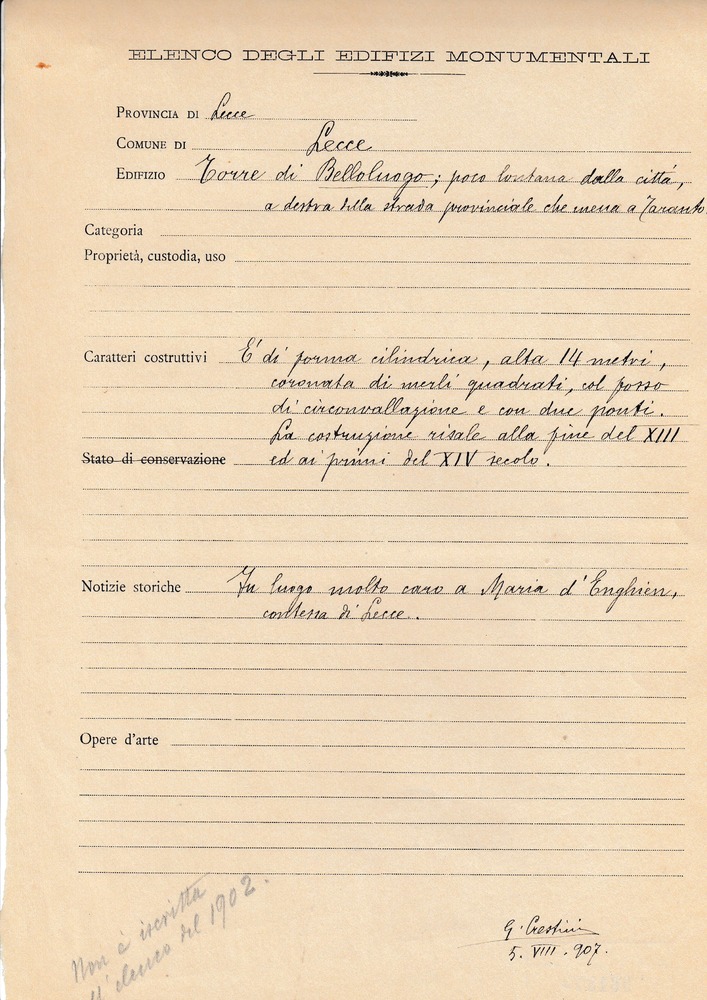 ELENCO DEGLI EDIFIZI MONUMENTALI
PROVINCIA DI Lecce
COMUNE DI Lecce
EDIFIZIO Torre di Belloluogo; poco lontana dalla città,
a destra della strada provinciale che mena a Taranto.
Categoria
Proprietà, custodia, uso
Caratteri costruttivi È di forma cilindrica, alta 14 metri,
coronata di merli quadrati, col fosso
di circonvallazione e con due ponti.
La costruzione risale alla fine del XIII
Stato di conservazione ed ai primi del XIV secolo.
Notizie storiche Fu luogo molto caro a Maria d'Enghien,
contessa di Lecce.
Opere d'arte
Non è iscritta
elenco del 1902.
G.
5. VIII. 907.